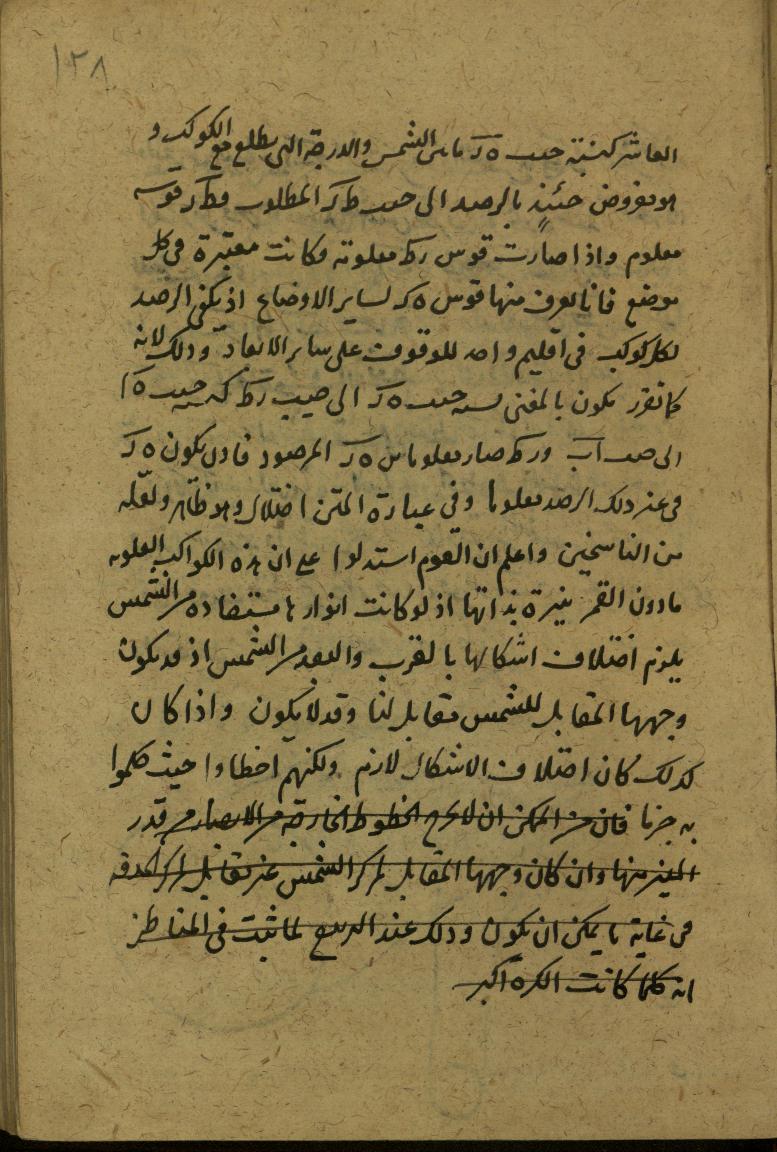 ١٢٨
العاشر كنسبة جيب ه ر ما بين الشمس والدرجة التي يطلع مع الكوكب و
هو مفروض حينئذ بالرصد الى جيب ط ر المطلوب فط ر قوسه
معلوم واذا صارت قوس ر ط معلومة وكانت معتبرة في كل
موضع فانا نعرف منها قوس ه ر لساير الاوضاع اذ يكفي الرصد
لكل كوكب في اقليم واحد للوقوف على ساير الابعاد وذلك لانه
كما تقرر يكون بالمغنى نسبة جيب ه ر الى جيب ر ط كنسبة جيب ه ا
الى جيب ا ب و ر ط صار معلوما من ه ر المرصود فاذن يكون ه ر
في غير ذلك الرصد معلوما وفي عبارة المتن اختلال وهو ظاهر ولعله
من الناسخين واعلم ان القوم استدلوا على ان هذه الكواكب العلوية
ما دون القمر نيرة بذاتها اذ لو كانت انوارها مستفادة من الشمس
يلزم اختلاف اشكالها بالقرب والبعد من الشمس اذ قد يكون
وجهها المقابل للشمس مقابل لنا وقد لا يكون واذا كان
كذلك كان اختلاف الاشكال لازم ولكنهم اخطاوا حيث حكموا
به جزما فان من الممكن ان لا تخرج الخطوط الخارجة من الابصار من قدر
المنير منها وان كان وجهها المقابل لمركز الشمس غير مقابل لمركز الحدقة
في غاية ما يمكن ان يكون وذلك عند التربيع لما ثبت في المناظر
انه كلما كانت الكرة اكبر